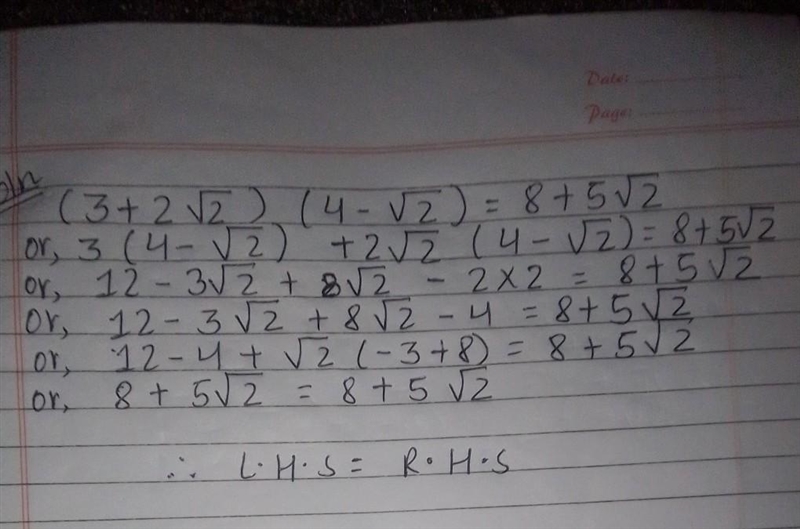 Date: ..................
Page: ..................
(3+2√2) (4-√2) = 8+5√2
or, 3(4-√2) +2√2 (4-√2)= 8+5√2
or, 12-3√2 + 8√2 - 2×2 = 8+5√2
or, 12-3√2 +8√2 -4 = 8+5√2
or, 12-4+ √2 (-3+8) = 8+5√2
or, 8+ 5√2 = 8+5√2
∴ L.H.S = R.H.S